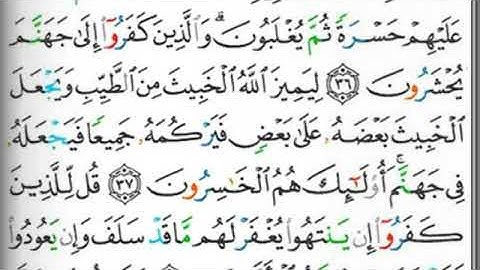 عَلَيْهِمْ حَسْرَةً ثُمَّ يُغْلَبُونَ ۗ وَٱلَّذِينَ كَفَرُوٓا۟ إِلَىٰ جَهَنَّمَ
يُحْشَرُونَ ٣٦ لِيَمِيزَ ٱللَّهُ ٱلْخَبِيثَ مِنَ ٱلطَّيِّبِ وَيَجْعَلَ
ٱلْخَبِيثَ بَعْضَهُۥ عَلَىٰ بَعْضٍ فَيَرْكُمَهُۥ جَمِيعًا فَيَجْعَلَهُۥ
فِى جَهَنَّمَ ۚ أُو۟لَٰٓئِكَ هُمُ ٱلْخَٰسِرُونَ ٣٧ قُل لِّلَّذِينَ
كَفَرُوٓا۟ إِن يَنتَهُوا۟ يُغْفَرْ لَهُم مَّا قَدْ سَلَفَ وَإِن يَعُودُوا۟